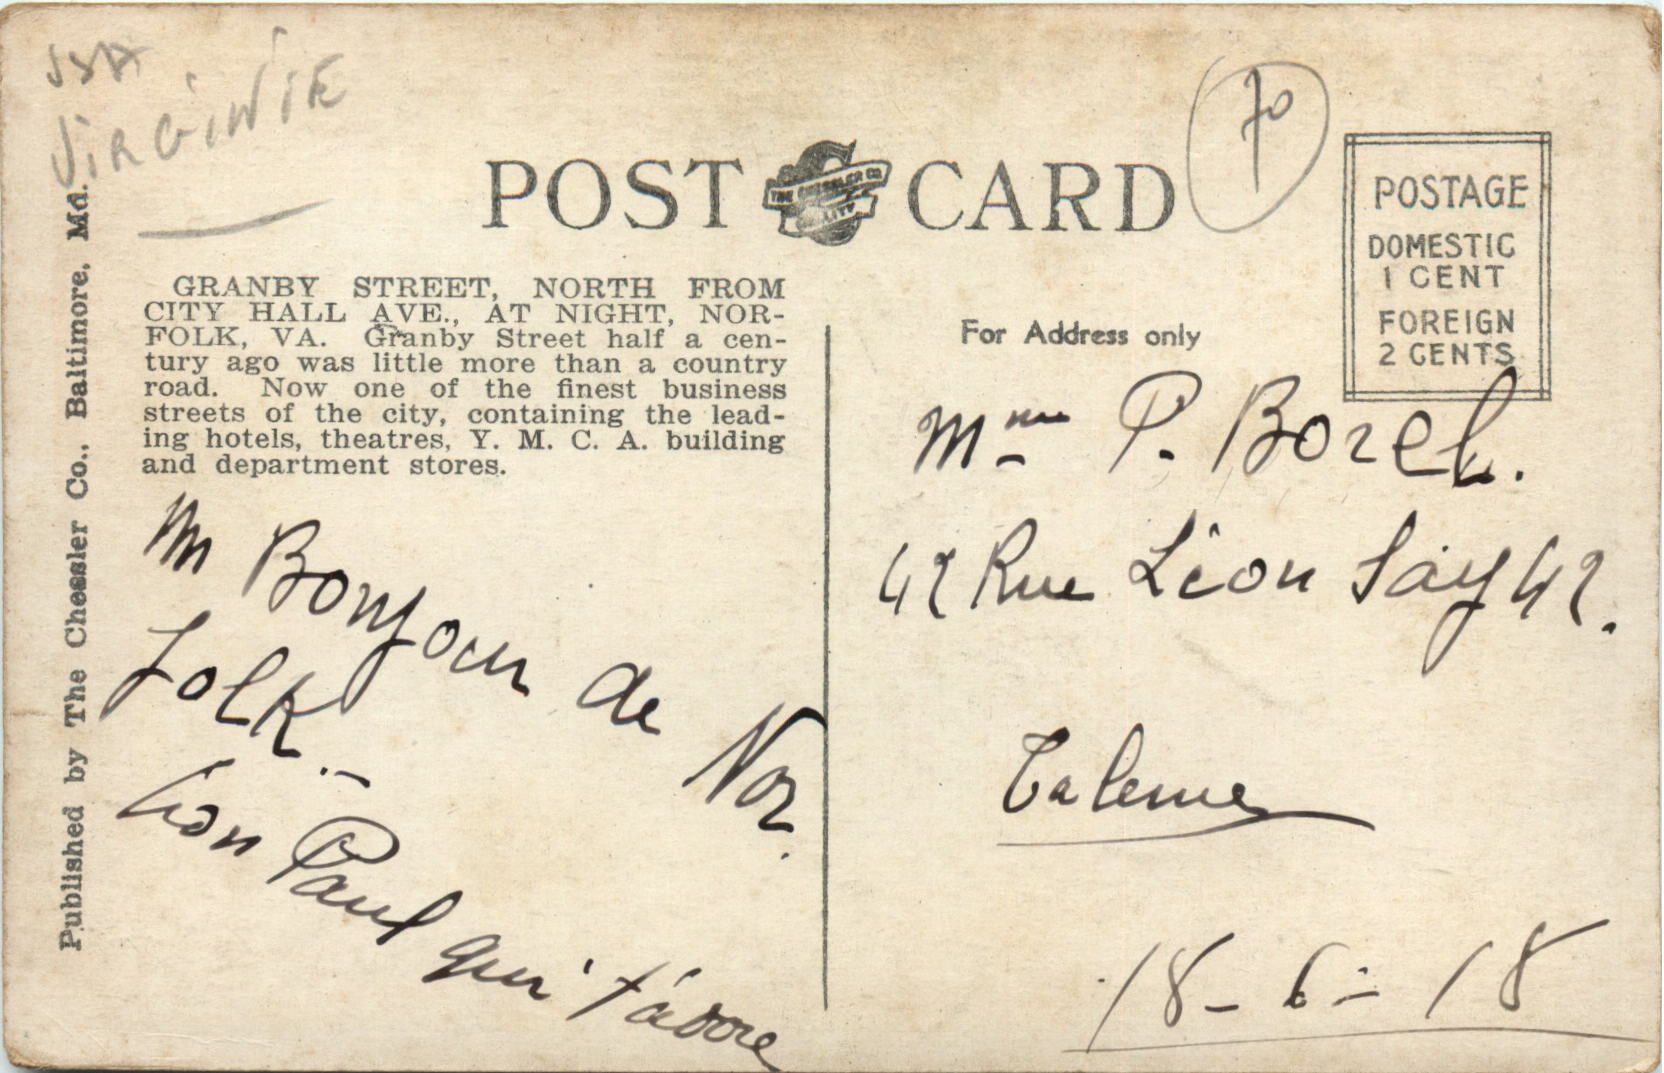 USA
VIRGINIE
70
POST CARD
THE CHESSLER CO
QUALITY
POSTAGE
DOMESTIC
1 CENT
FOREIGN
2 CENTS
Published by The Chessler Co., Baltimore, Md.
GRANBY STREET, NORTH FROM
CITY HALL AVE., AT NIGHT, NOR-
FOLK, VA. Granby Street half a cen-
tury ago was little more than a country
road. Now one of the finest business
streets of the city, containing the lead-
ing hotels, theatres, Y. M. C. A. building
and department stores.
Bonjour de Nor
folk. –
Paul qui t'adore
For Address only
Mme P. Borel.
42 Rue Léon Say 42.
Talence
18-6-18